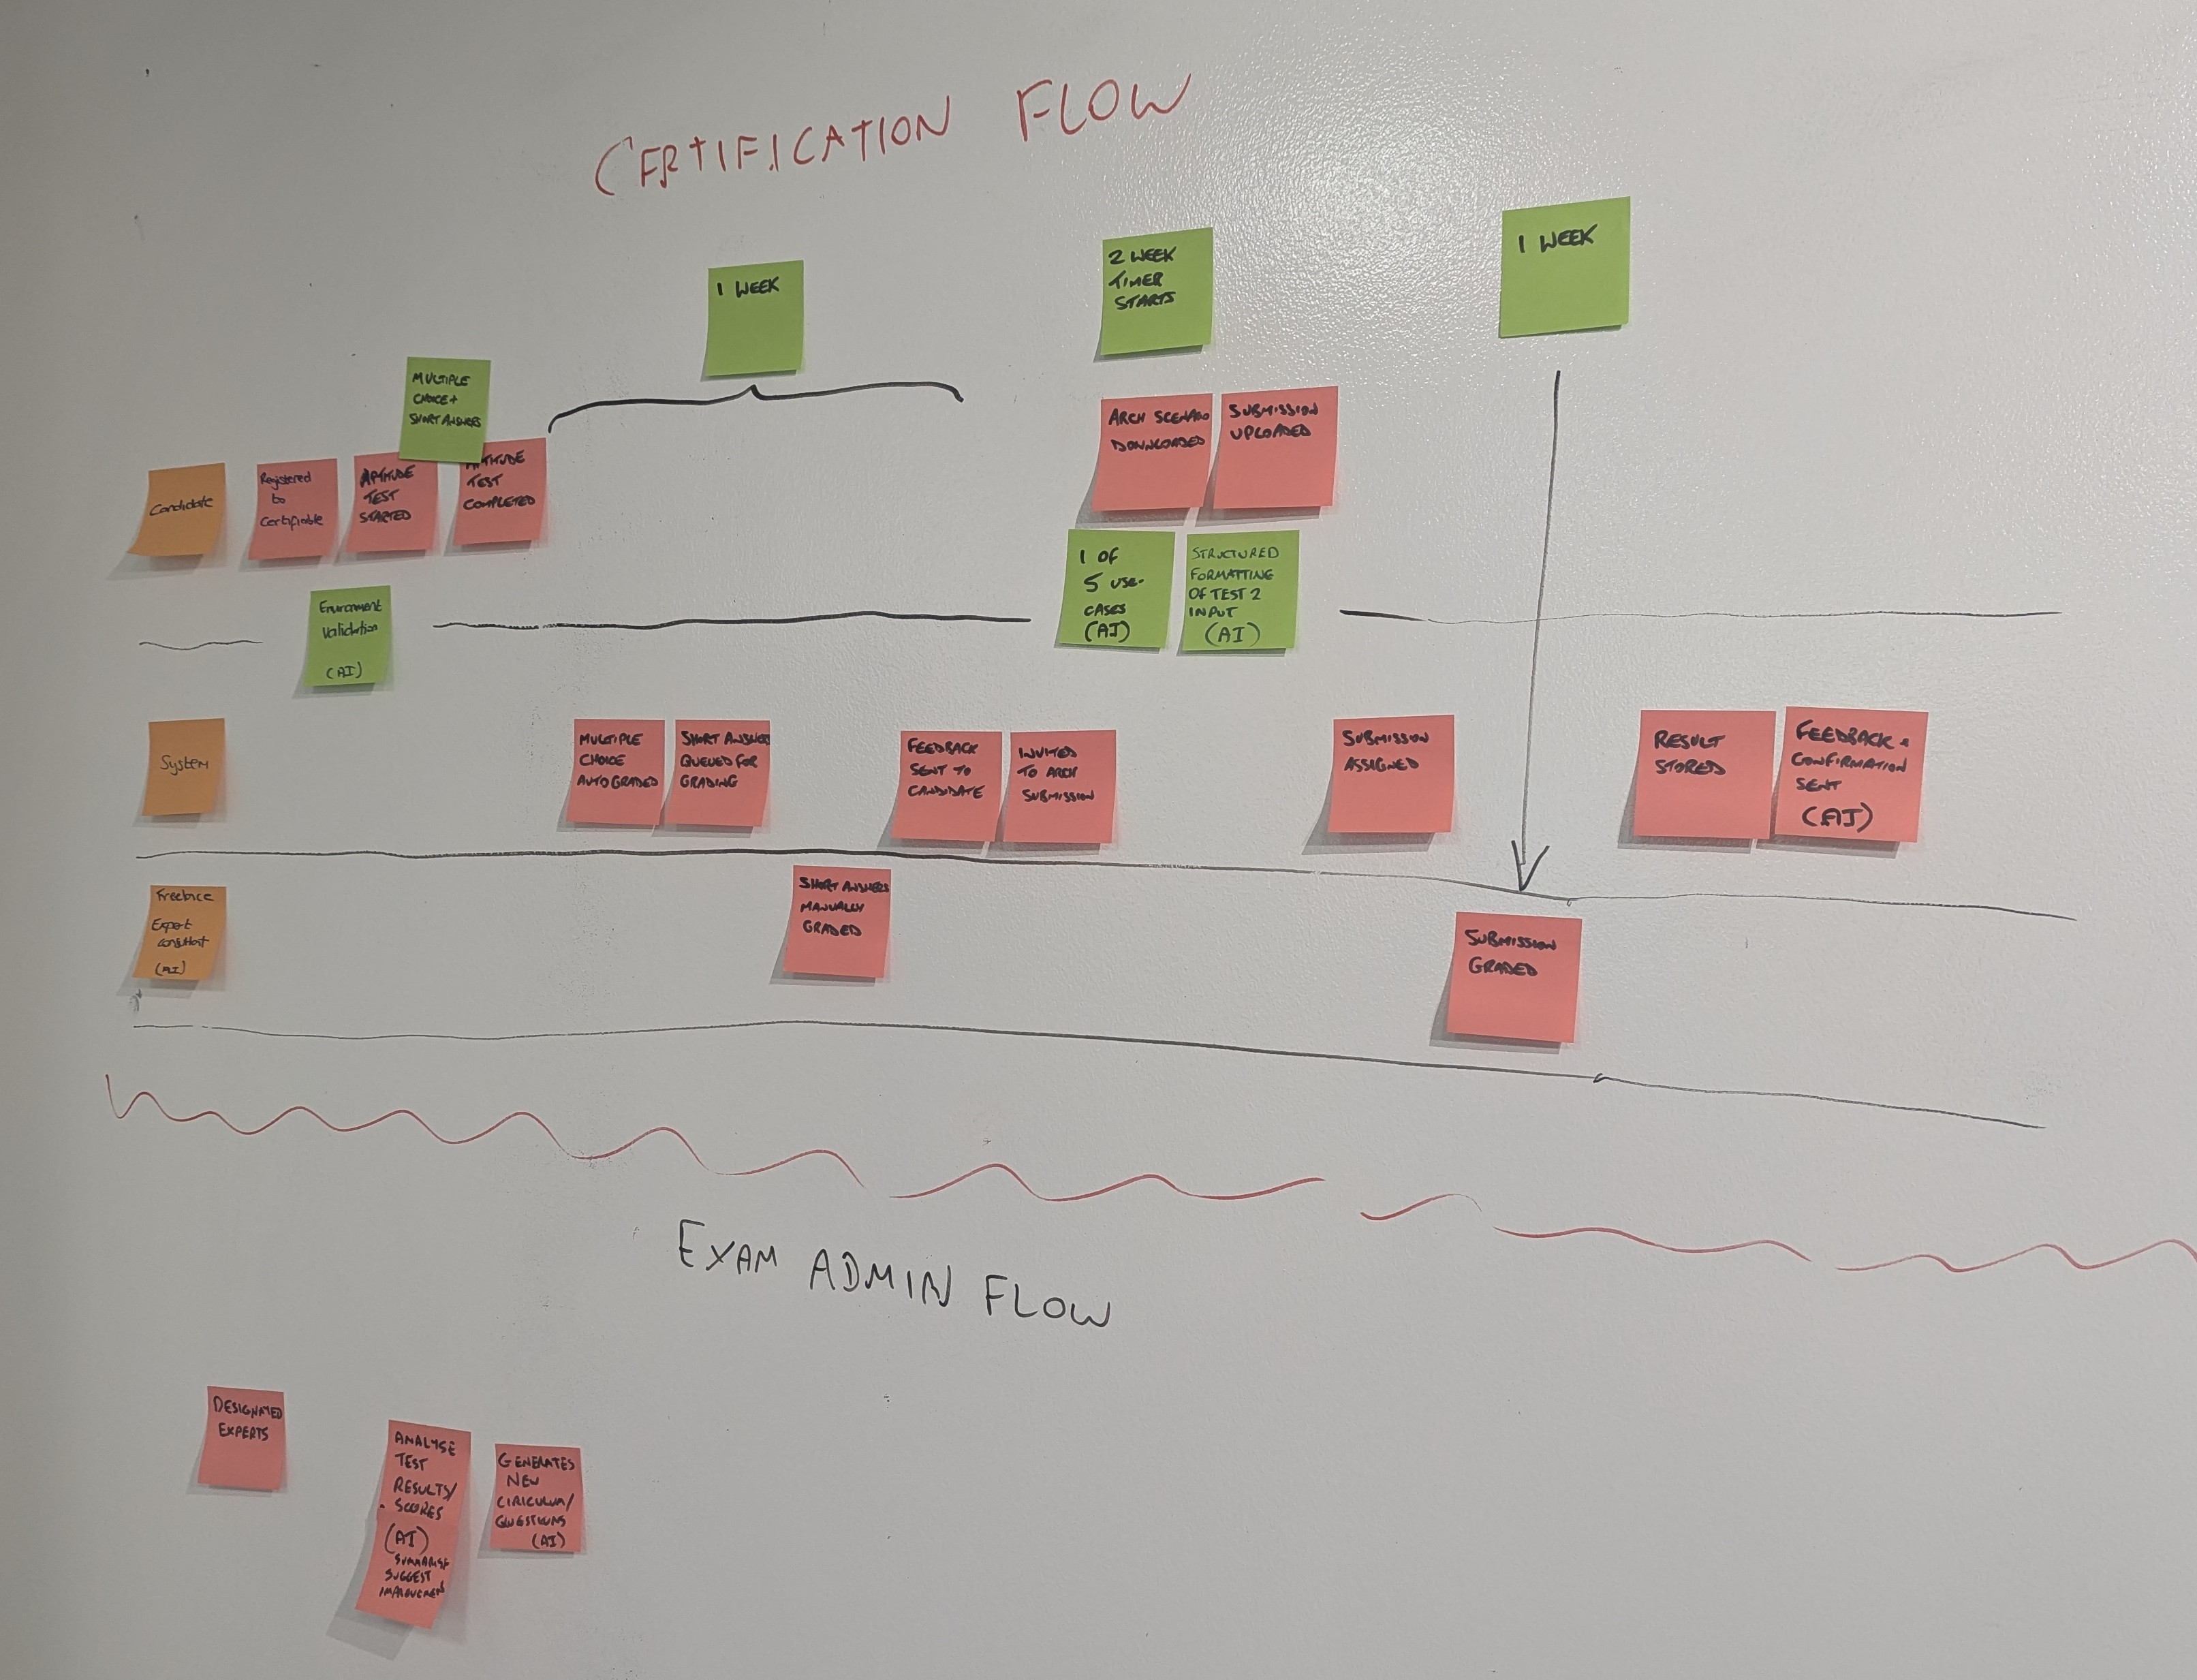 CERTIFICATION FLOW
1 WEEK
2 WEEK
TIMER
STARTS
1 WEEK
MULTIPLE
CHOICE +
SHORT ANSWERS
Candidate
Registered
to
Certifiable
APTITUDE
TEST
STARTED
APTITUDE
TEST
COMPLETED
ARCH SCENARIO
DOWNLOADED
SUBMISSION
UPLOADED
Environment
Validation
(AI)
1 OF
5 USE-
CASES
(AI)
STRUCTURED
FORMATTING
OF TEST 2
INPUT
(AI)
System
MULTIPLE
CHOICE
AUTOGRADED
SHORT ANSWERS
QUEUED FOR
GRADING
FEEDBACK
SENT TO
CANDIDATE
INVITED
TO ARCH
SUBMISSION
SUBMISSION
ASSIGNED
RESULT
STORED
FEEDBACK +
CONFIRMATION
SENT
(AI)
Freelance
Expert
Consultant
(AI)
SHORT ANSWERS
MANUALLY
GRADED
SUBMISSION
GRADED
EXAM ADMIN FLOW
DESIGNATED
EXPERTS
ANALYSE
TEST
RESULTS/
SCORES
(AI)
SUMMARISE
SUGGEST
IMPROVEMENTS
GENERATES
NEW
CIRICULUM/
QUESTIONS
(AI)